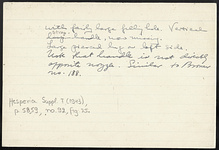 with fairly large filling hole. Vertical
strap handle, now missing.
Large ground lug on left side.
Note that handle is not directly
opposite nozzle. Similar to Broneer
no. 188.
Hesperia Suppl. 7 (1943),
p. 58, 59, no. 98, fig. 25.